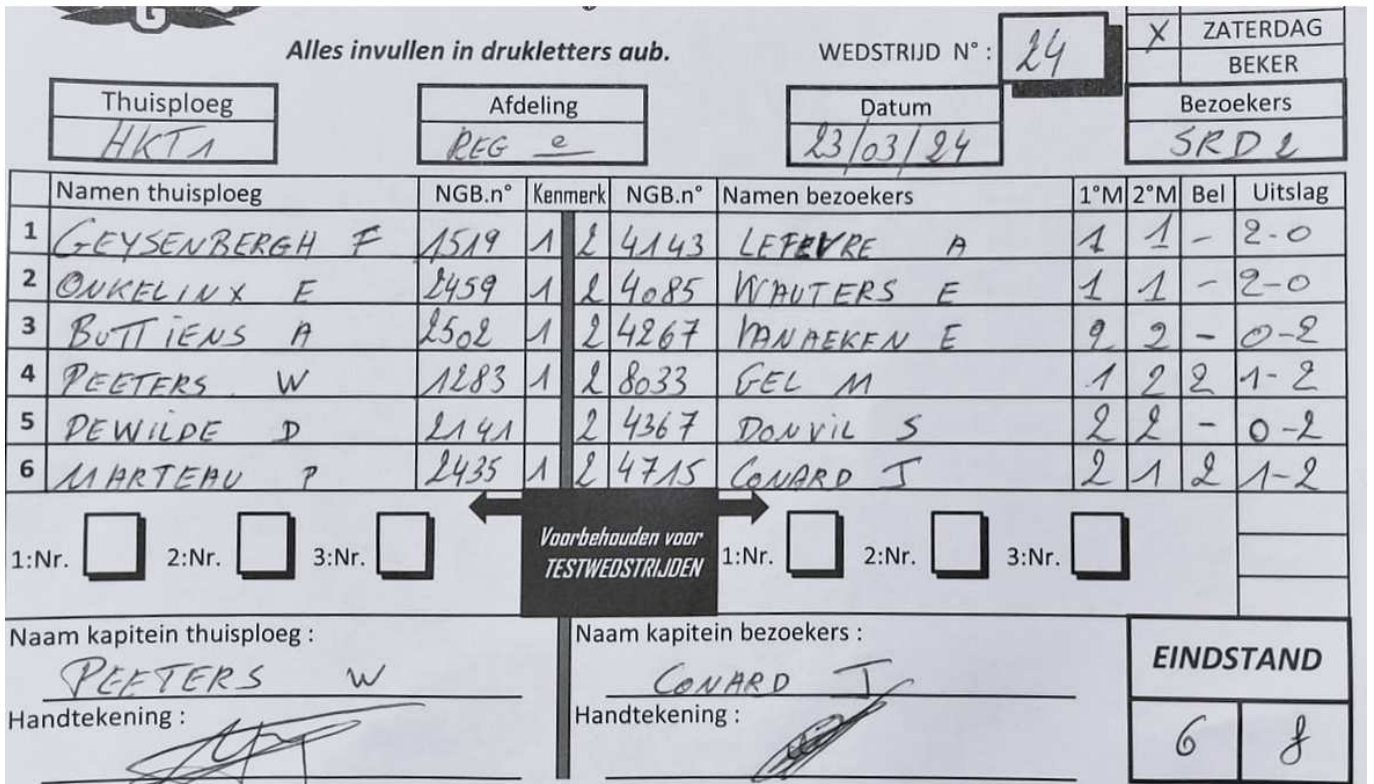 G
Alles invullen in drukletters aub.
WEDSTRIJD N° : 24
X ZATERDAG
BEKER
Thuisploeg Afdeling Datum Bezoekers
HKT1 REG e 23/03/24 SRD 2
Namen thuisploeg NGB.n° Kenmerk NGB.n° Namen bezoekers 1°M 2°M Bel Uitslag
1 GEYSENBERGH F 1519 1 2 4143 LEFEVRE A 1 1 - 2-0
2 ONKELINX E 2459 1 2 4085 WAUTERS E 1 1 - 2-0
3 BUTTIENS A 2502 1 2 4267 VANAEKEN E 2 2 - 0-2
4 PEETERS W 1283 1 2 8033 GEL M 1 2 2 1-2
5 DEWILDE D 2141 2 4367 DONVIL S 2 2 - 0-2
6 MARTEAU P 2435 1 2 4715 CONARD J 2 1 2 1-2
1:Nr. 2:Nr. 3:Nr. Voorbehouden voor TESTWEDSTRIJDEN 1:Nr. 2:Nr. 3:Nr.
Naam kapitein thuisploeg : Naam kapitein bezoekers :
PEETERS W CONARD J
EINDSTAND
Handtekening : Handtekening :
6 8